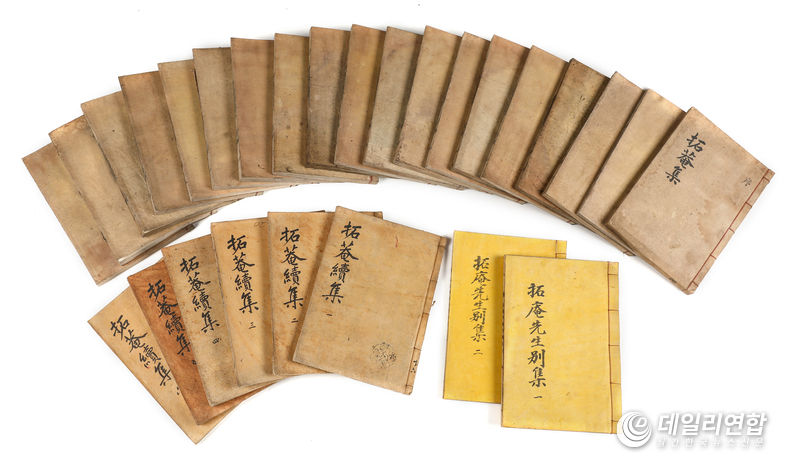 拓菴集
序
拓菴續集
拓菴續集
拓菴續集 四
拓菴續集 三
拓菴續集 二
拓菴續集 一
拓庵先生別集 二
拓庵先生別集 一
데일리연합